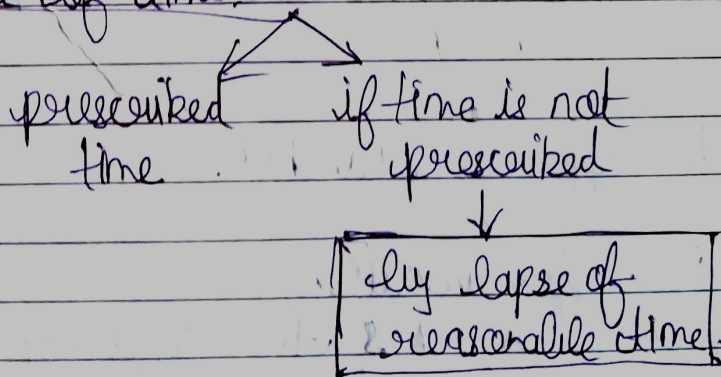 of time.
prescribed
time
if time is not
prescribed
by lapse of
reasonable time.